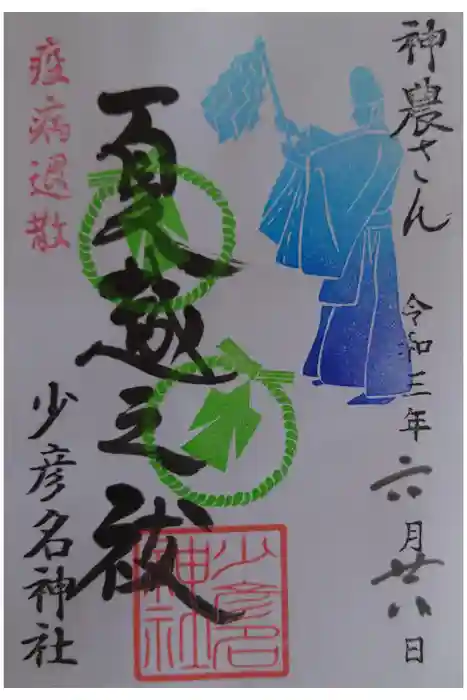 神農さん
令和三年六月廿八日
夏越之祓
疫病退散
少彦名神社
少彦名
神社